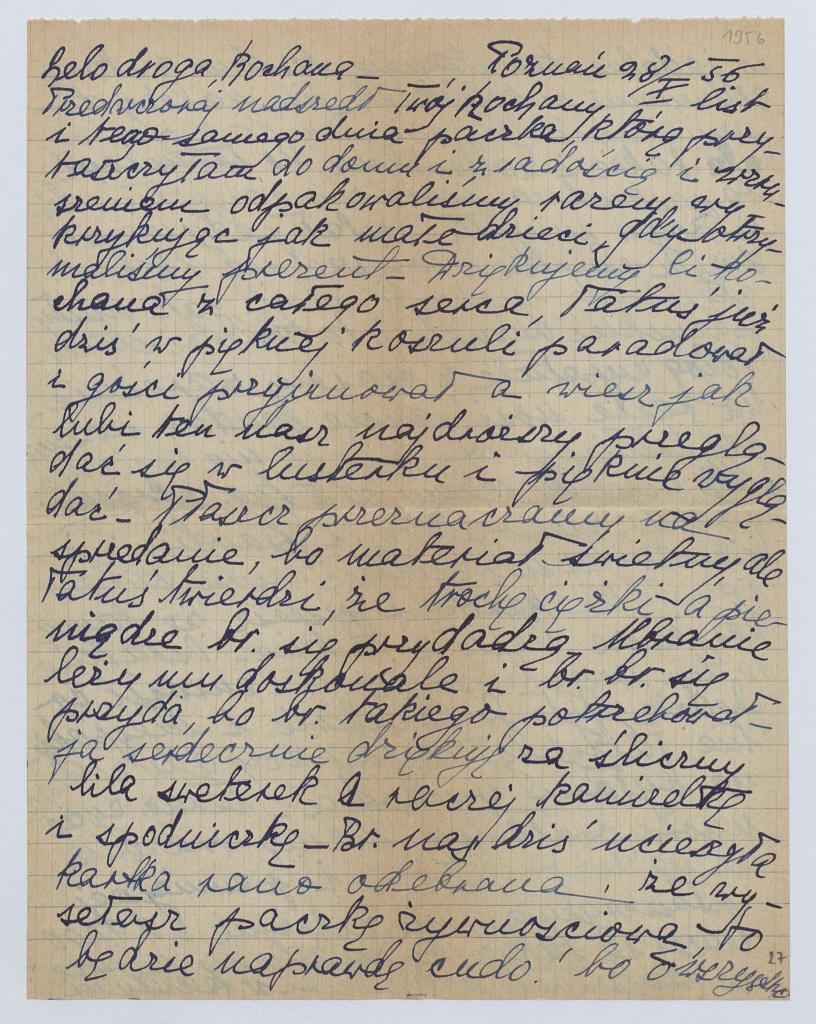 1956
Lelo droga, Kochana – Poznań 28/X 56
Przedwczoraj nadszedł Twój kochany list
i tego samego dnia paczka, którą przy-
taszczyłam do domu i z radością i wzru-
szeniem odpakowaliśmy razem wy-
krzykując jak małe dzieci, gdy otrzy-
maliśmy prezent – Dziękujemy Ci ko-
chana z całego serca, Tatuś już
dziś w pięknej koszuli paradował
i gości przyjmował a wiesz jak
lubi ten nasz najdroższy przeglą-
dać się w lusterku i pięknie wyglą-
dać – Płaszcz przeznaczamy na
sprzedanie, bo materiał świetny, ale
Tatuś twierdzi, że trochę ciężki – a pie-
niądze br. się przydadzą. Ubranie
leży mu doskonale i br. br. się
przyda, bo br. takiego potrzebował –
ja serdecznie dziękuję za śliczny
lila sweterek a raczej kamizelkę
i spódniczkę – Br. nas dziś ucieszyła
kartka rano odebrana, że wy-
syłasz paczkę żywnościową – to
będzie naprawdę cudo! bo
27